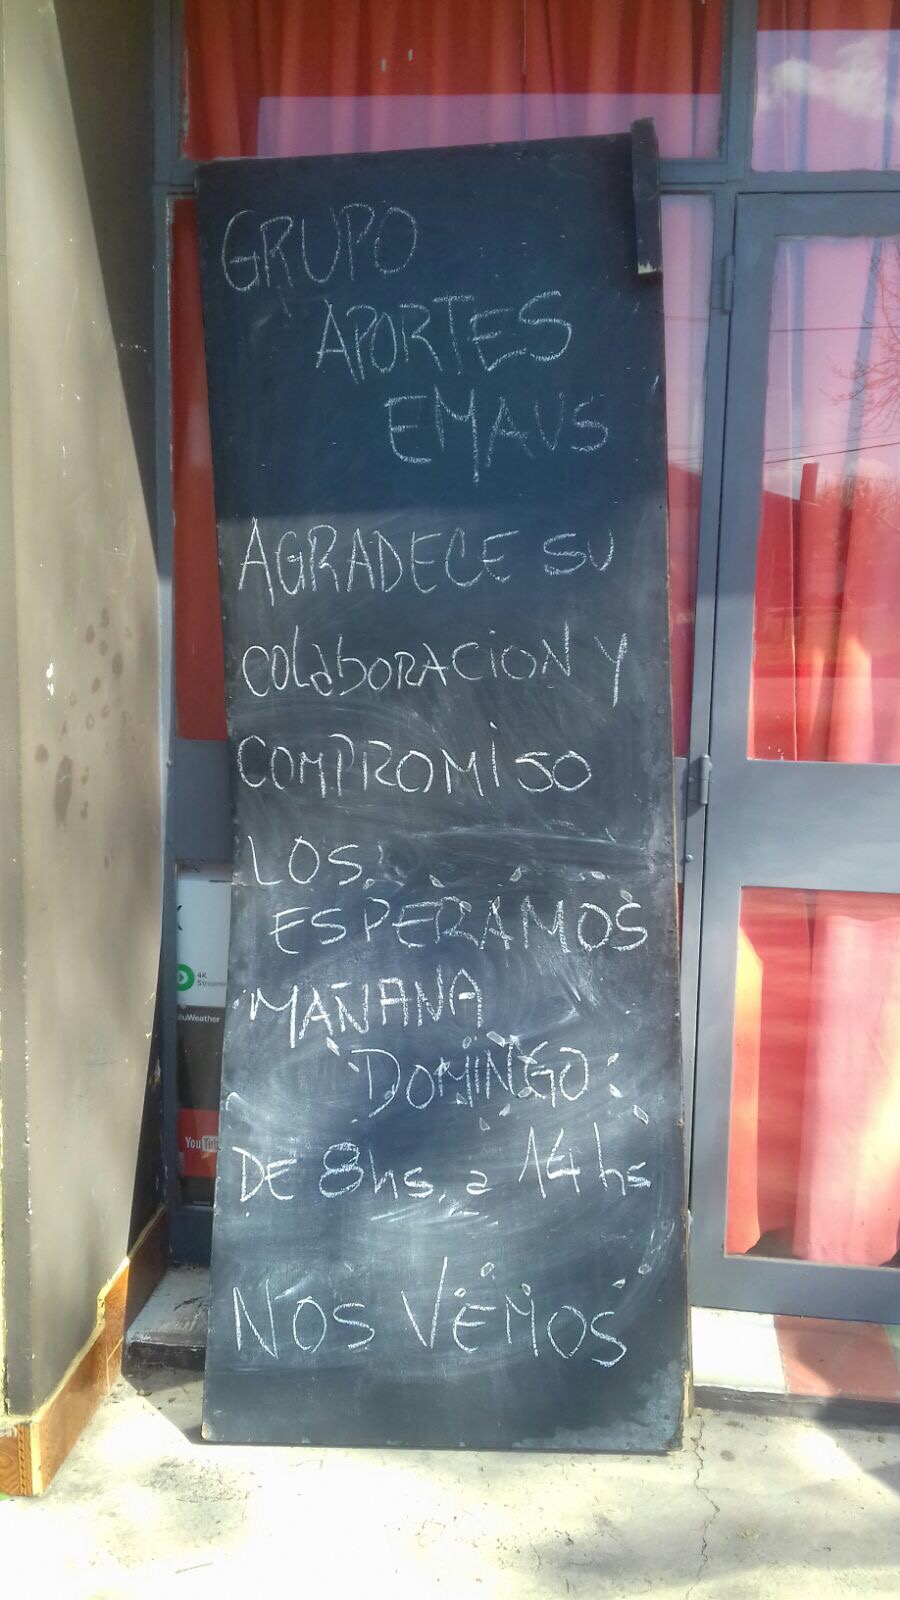 GRUPO
APORTES
EMAUS
AGRADECE SU
COLABORACION Y
COMPROMISO
LOS
ESPERAMOS
MAÑANA
DOMINGO
DE 8hs. a 14 hs
NOS VEMOS
4K
YouTube